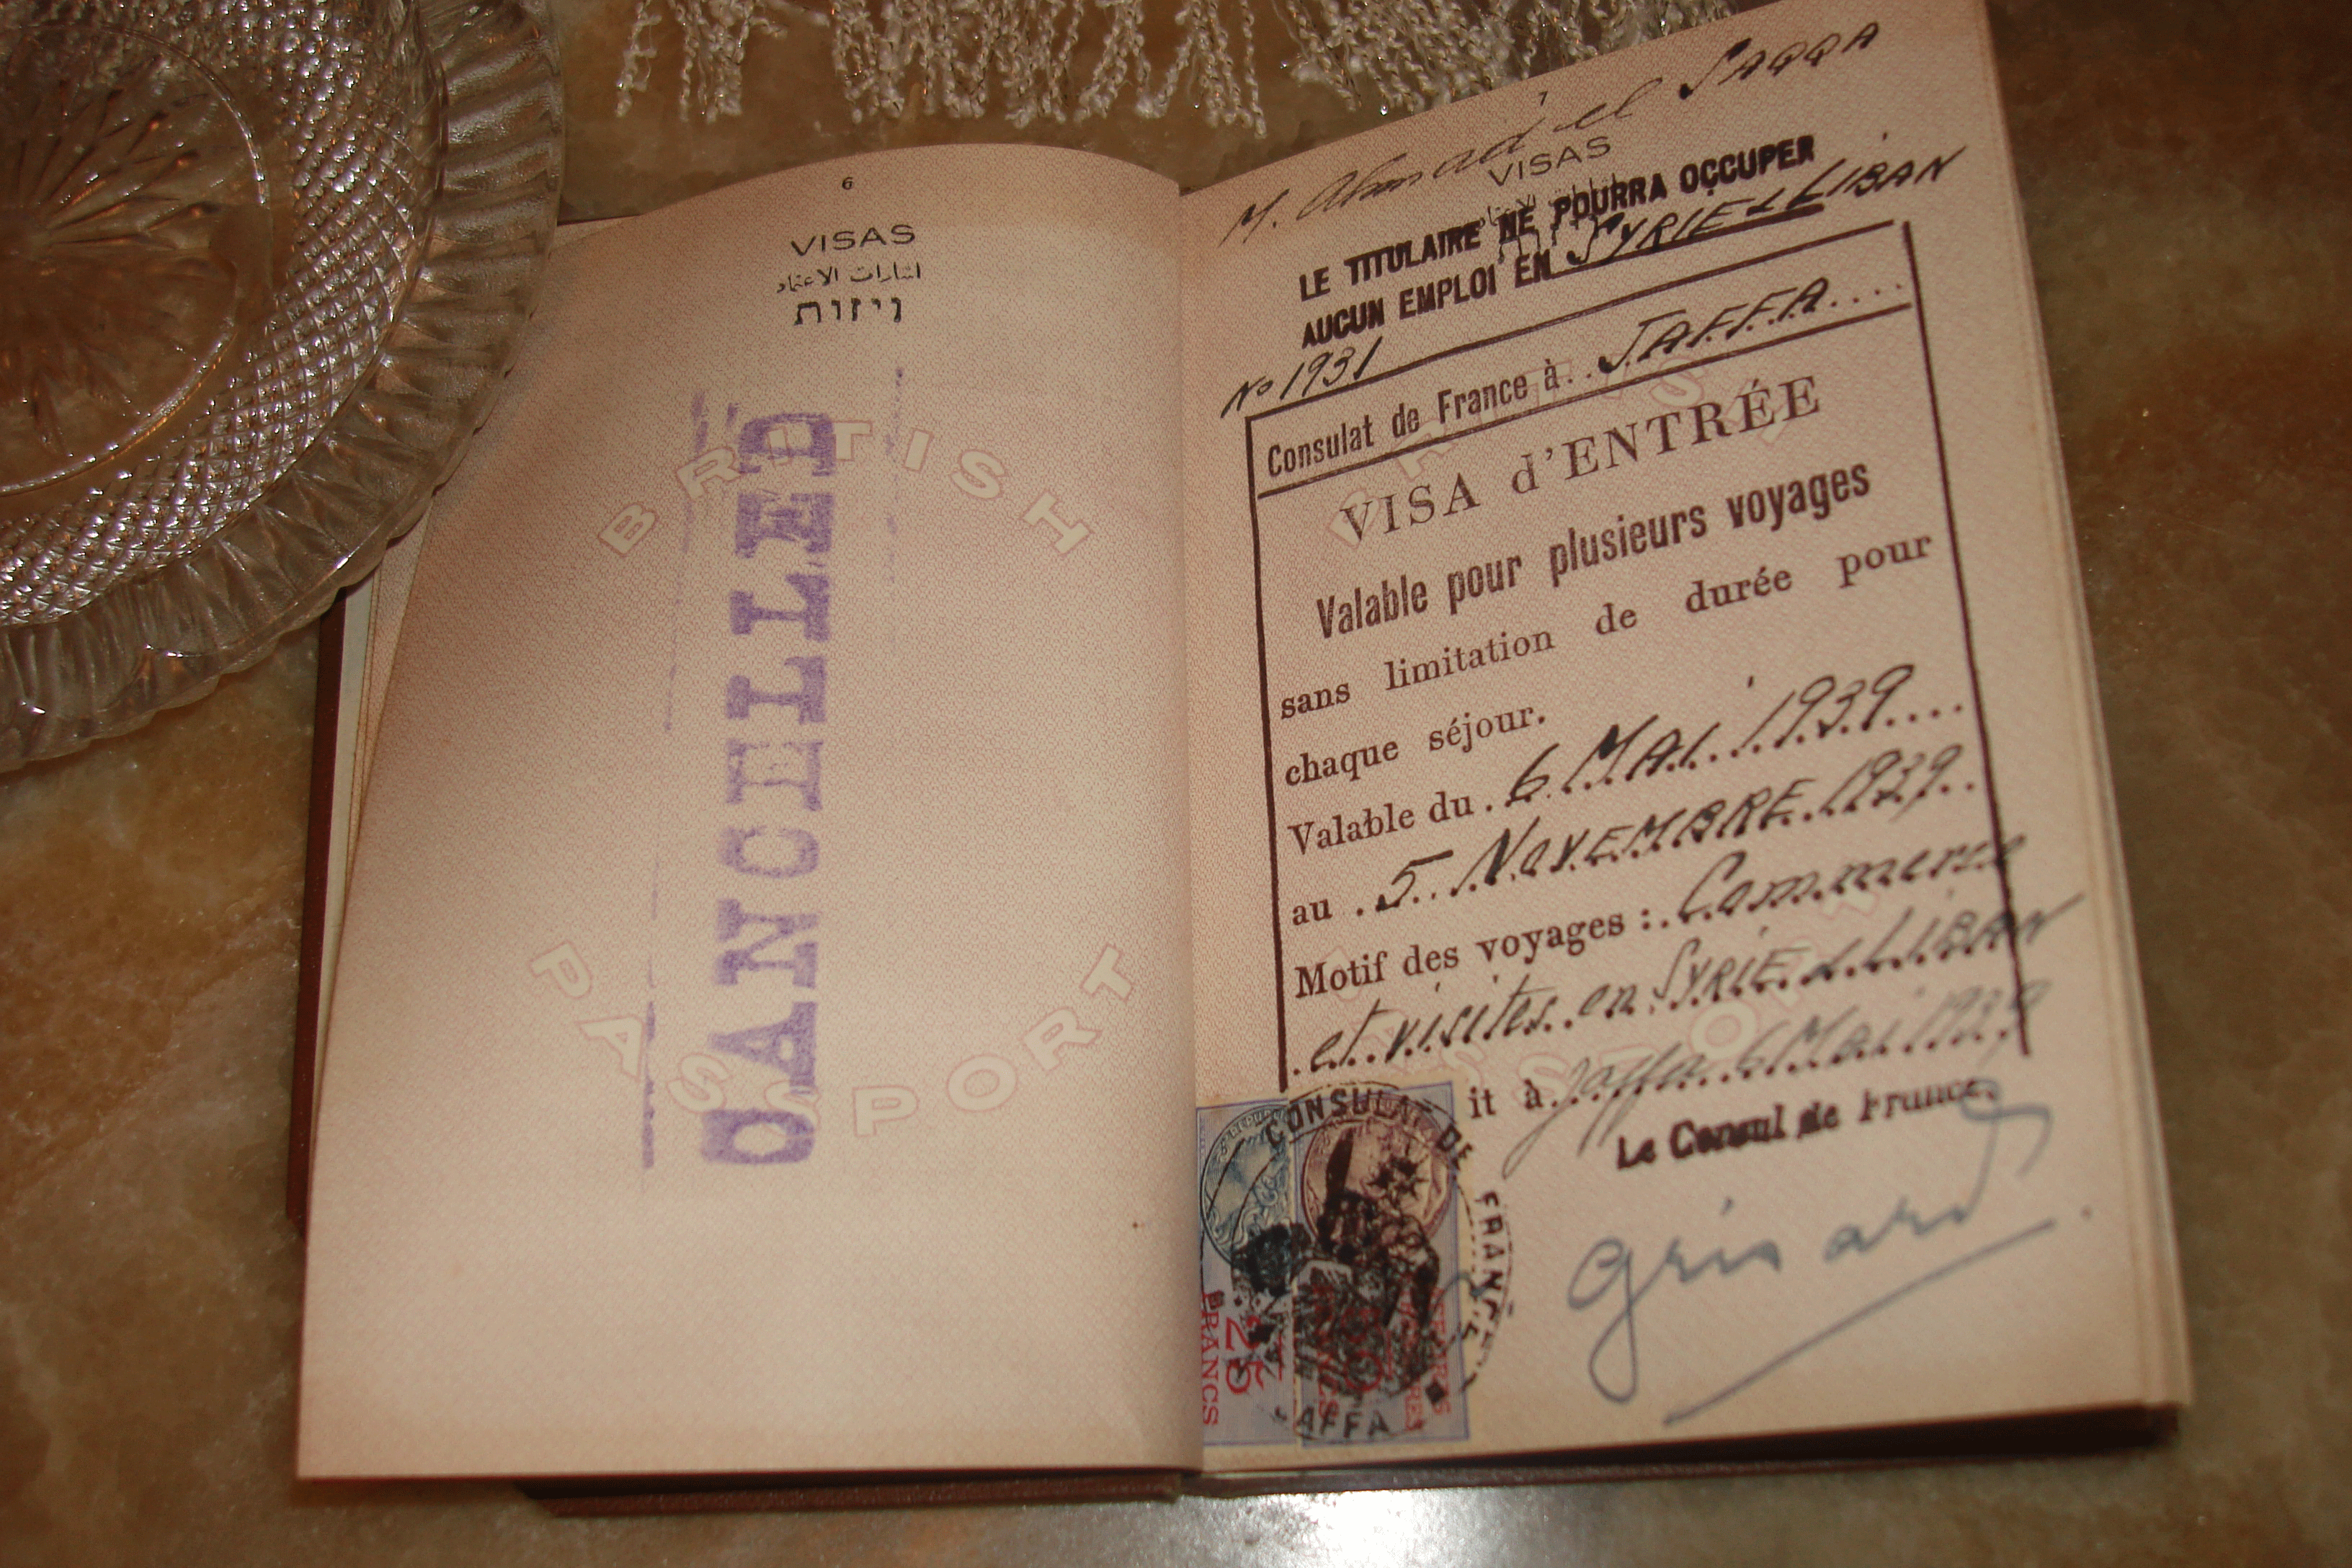 6
VISAS
اشارات الاعتماد
ויזות
CANCELLED
BRITISH
PASSPORT
7
M. Ahmad el SAQQA
VISAS
LE TITULAIRE NE POURRA OCCUPER
AUCUN EMPLOI EN SYRIE & LIBAN
No 1931
Consulat de France à..JAFFA....
VISA d'ENTRÉE
Valable pour plusieurs voyages
sans limitation de durée pour
chaque séjour.
Valable du . 6 MAI 1939....
au . 5 NOVEMBRE 1939..
Motif des voyages : . Commerce
et visites en SYRIE & LIBAN
it à. Jaffa 6 Mai 1939
Le Consul de France.
Grisard
CONSULAT DE FRANCE
25
FRANCS
AFFA